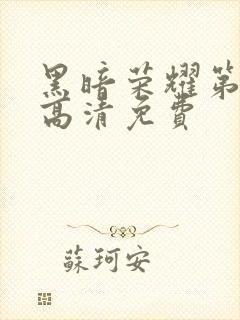 黑暗荣耀第
高清免費
蘇珂安